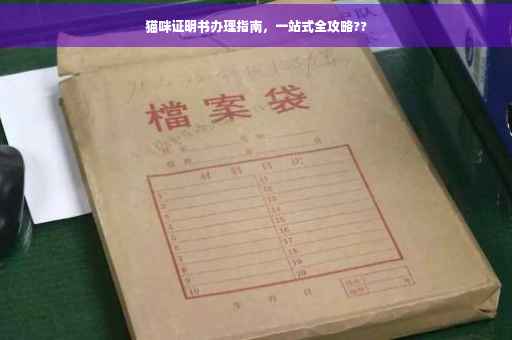 猫咪证明书办理指南，一站式全攻略??
檔案袋
材料目次
1 11
2 12
3 13
4 14
5 15
6 16
7 17
8 18
9 19
10 20
年 月 日